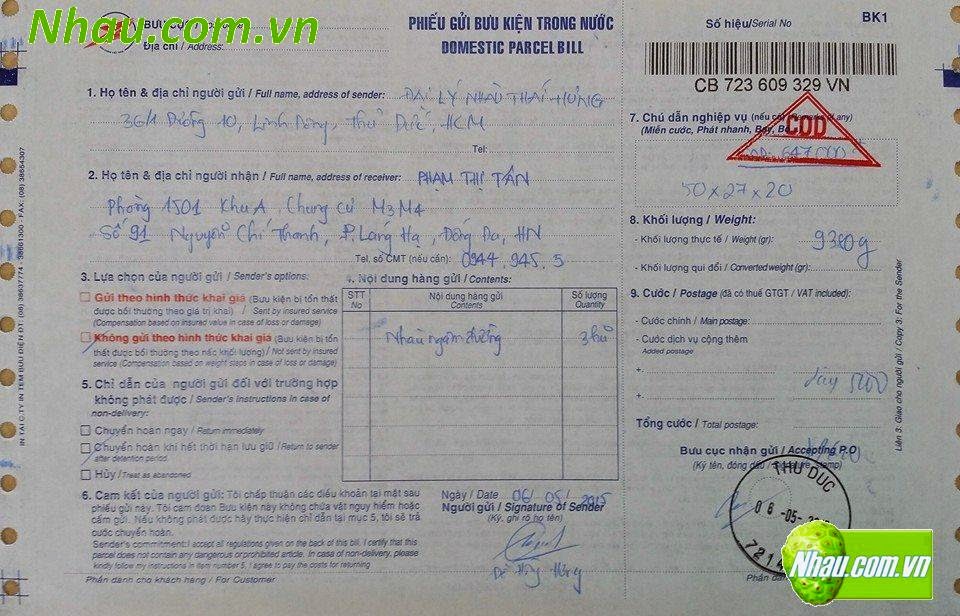 Nhau.com.vn
BƯU CỤC
Địa chỉ / Address:
PHIẾU GỬI BƯU KIỆN TRONG NƯỚC
DOMESTIC PARCEL BILL
Số hiệu/Serial No
BK1
CB 723 609 329 VN
1. Họ tên & địa chỉ người gửi / Full name, address of sender: ĐẠI LÝ NHÀU THÁI HƯNG
36/1 Đường 10, Linh Đông, Thủ Đức, HCM
Tel:
2. Họ tên & địa chỉ người nhận / Full name, address of receiver: PHẠM THỊ TẤN
Phòng 1501 Khu A, Chung cư M3M4
Số 91 Nguyễn Chí Thanh, P. Láng Hạ, Đống Đa, HN
Tel, số CMT (nếu cần): 0944.945.5
3. Lựa chọn của người gửi / Sender's options:
Gửi theo hình thức khai giá (Bưu kiện bị tổn thất
được bồi thường theo giá trị khai) / Sent by insured service
(Compensation based on insured value in case of loss or damage)
Không gửi theo hình thức khai giá (Bưu kiện bị tổn
thất được bồi thường theo nấc khối lượng) / Not sent by insured
service (Compensation based on weight steps in case of loss or damage)
4. Nội dung hàng gửi / Contents:
STT
No
Nội dung hàng gửi
Contents
Số lượng
Quantity
Nhàu ngâm đường 3 hũ
5. Chỉ dẫn của người gửi đối với trường hợp
không phát được / Sender's instructions in case of
non-delivery:
Chuyển hoàn ngay / Return immediately
Chuyển hoàn khi hết thời hạn lưu giữ / Return to sender
after detention period
Hủy / Treat as abandoned
6. Cam kết của người gửi: Tôi chấp thuận các điều khoản tại mặt sau
phiếu gửi này. Tôi cam đoan Bưu kiện này không chứa vật nguy hiểm hoặc
cấm gửi. Nếu không phát được hãy thực hiện chỉ dẫn tại mục 5, tôi sẽ trả
cước chuyển hoàn.
Sender's commitment: I accept all regulations given on the back of this bill. I certify that this
parcel does not contain any dangerous or prohibited article. In case of non-delivery, please
kindly follow my instructions in item number 5, I agree to pay the costs for returning
Phần dành cho khách hàng / For Customer
Ngày / Date 06/05/2015
Người gửi / Signature of Sender
(Ký, ghi rõ họ tên)
7. Chú dẫn nghiệp vụ (nếu có)
(Miễn cước, Phát nhanh, Bay,
COD
647000
50 x 27 x 20
8. Khối lượng / Weight:
- Khối lượng thực tế / Weight (gr): 9300g
- Khối lượng qui đổi / Converted weight (gr):
9. Cước / Postage (đã có thuế GTGT / VAT included):
- Cước chính / Main postage:
- Cước dịch vụ cộng thêm
Added postage
+
+
Tổng cước / Total postage:
Bưu cục nhận gửi / Accepting P.O
(Ký tên, đóng dấu / Signature, stamp)
THU DUC
Phần
Liên 3: Giao cho người gửi / Copy 3: For the Sender
Nhau.com.vn